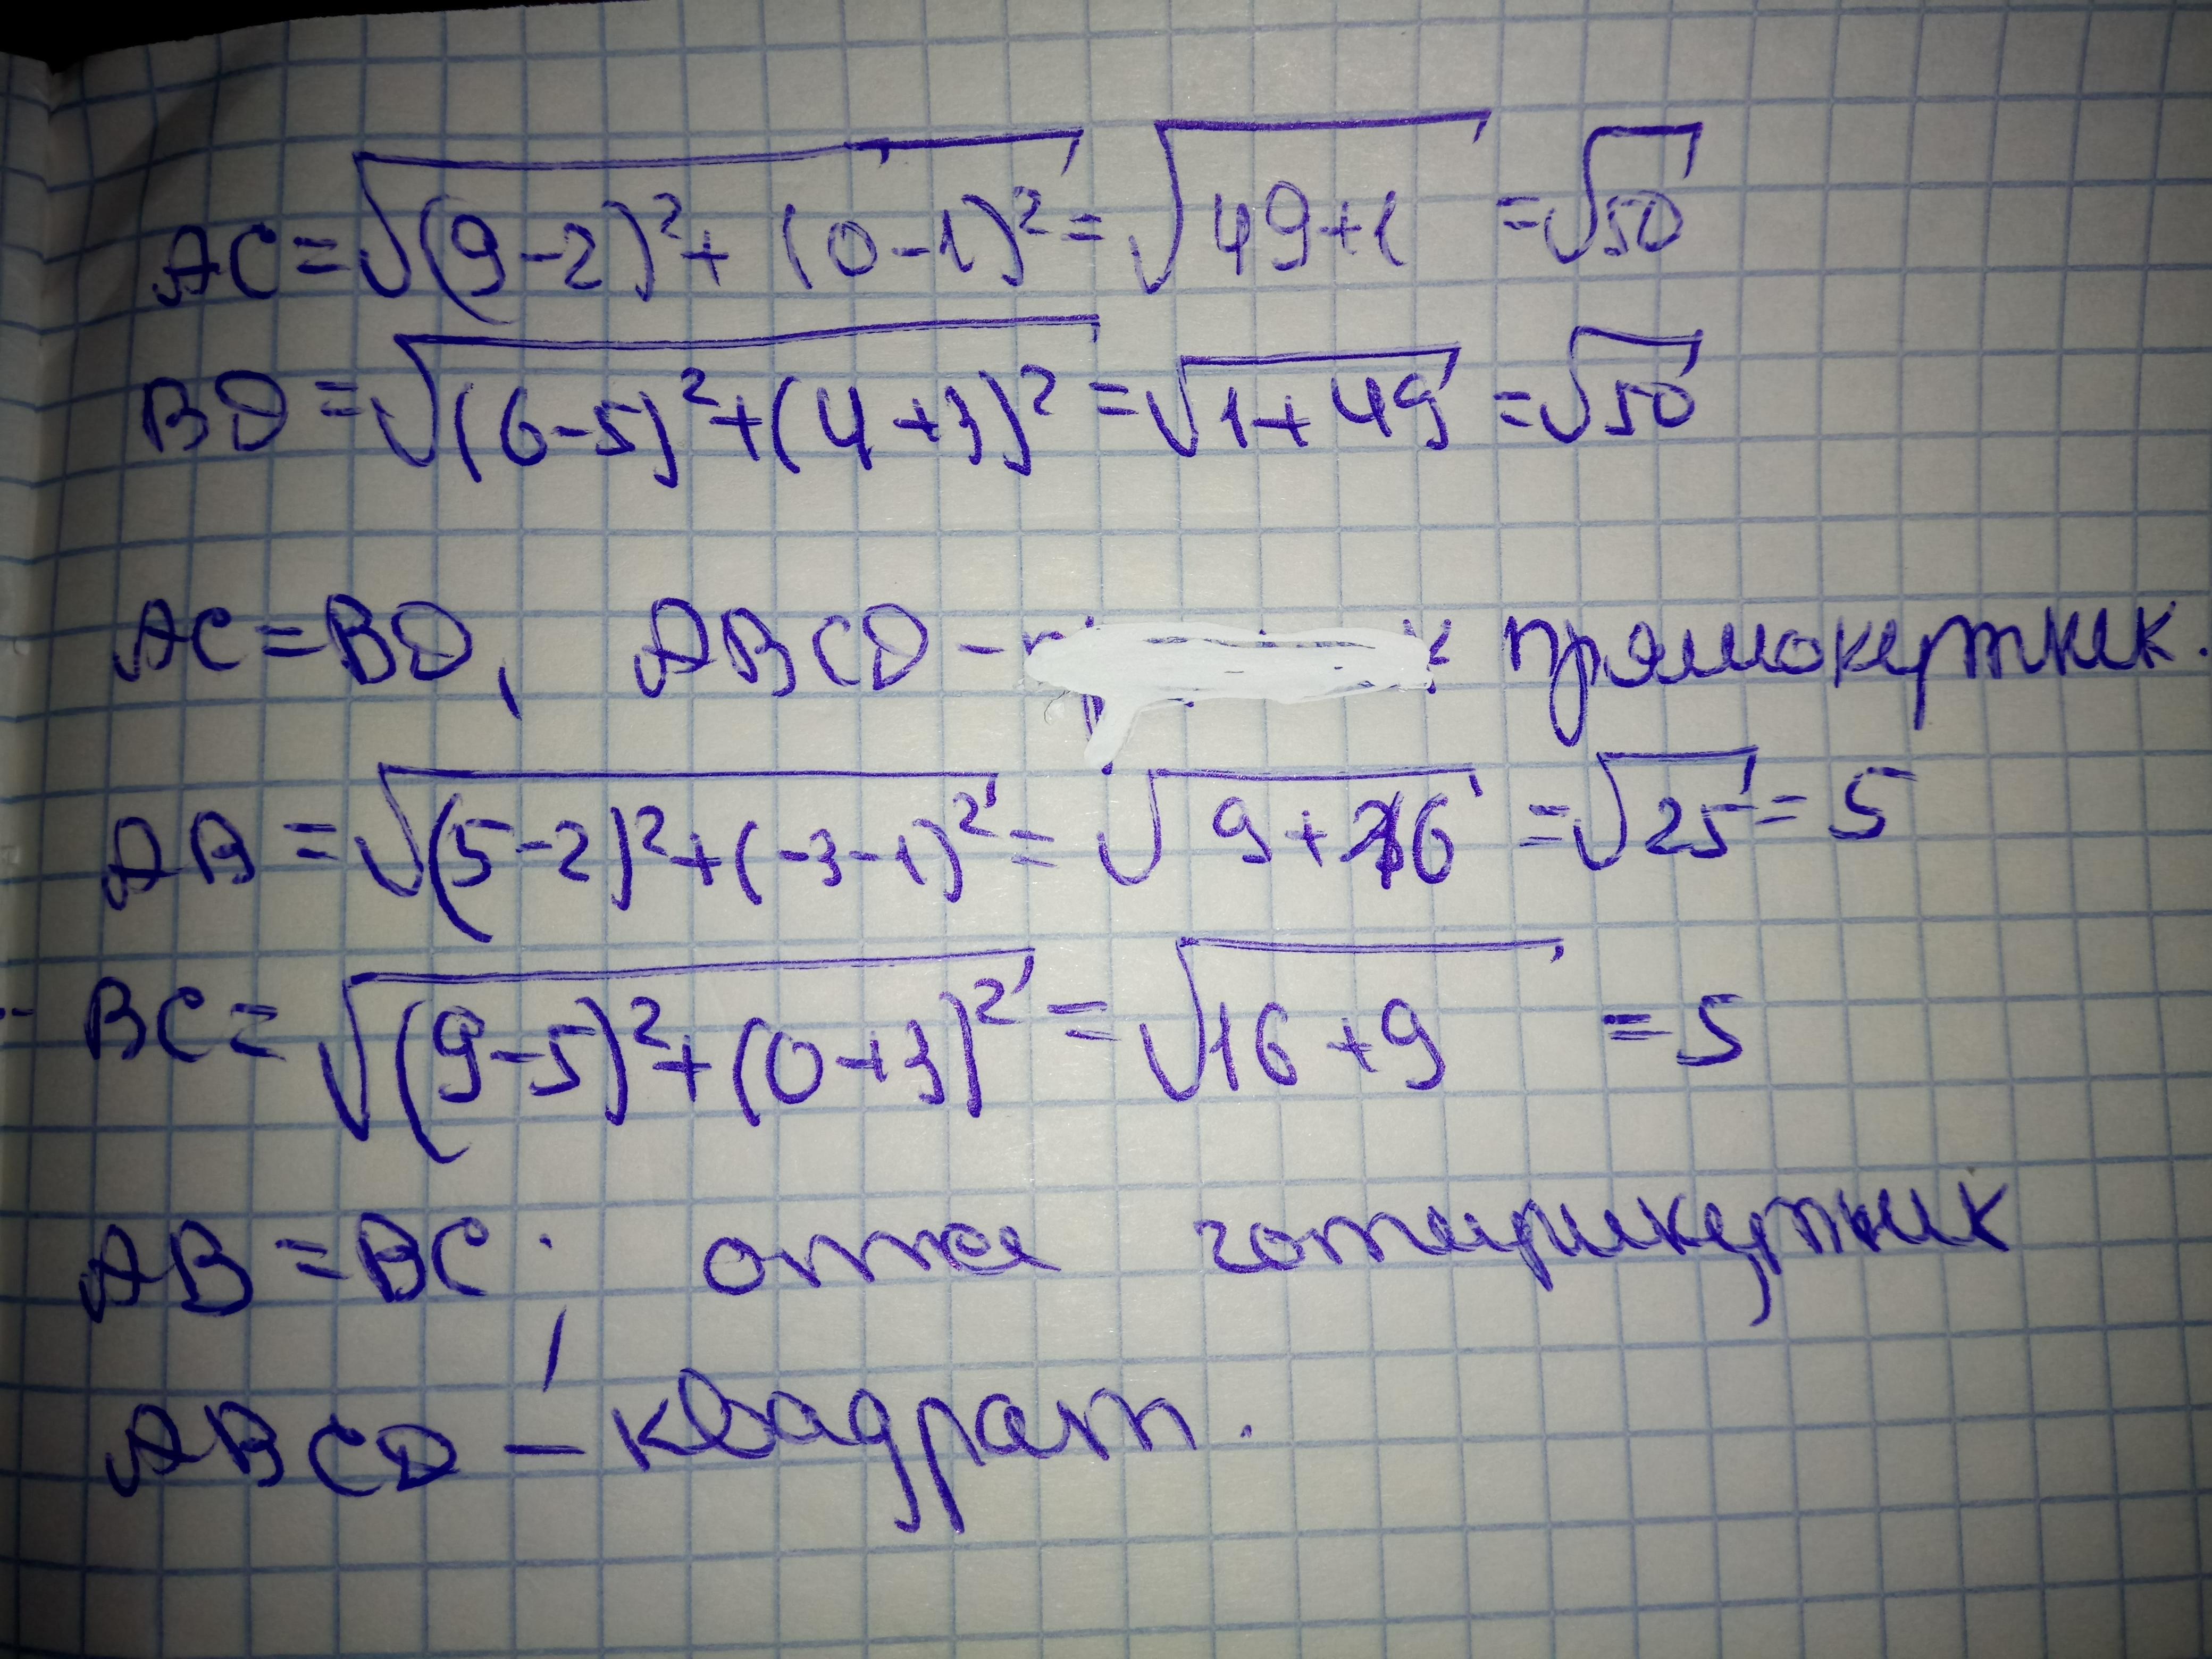 AC = √(9-2)² + (0-1)² = √49+1 = √50
BD = √(6-5)² + (4+3)² = √1+49 = √50
AC = BD, ABCD - прямокутник.
AB = √(5-2)² + (-3-1)² = √9+16 = √25 = 5
BC = √(9-5)² + (0+3)² = √16+9 = 5
AB = BC; отже чотирикутник
ABCD - квадрат.